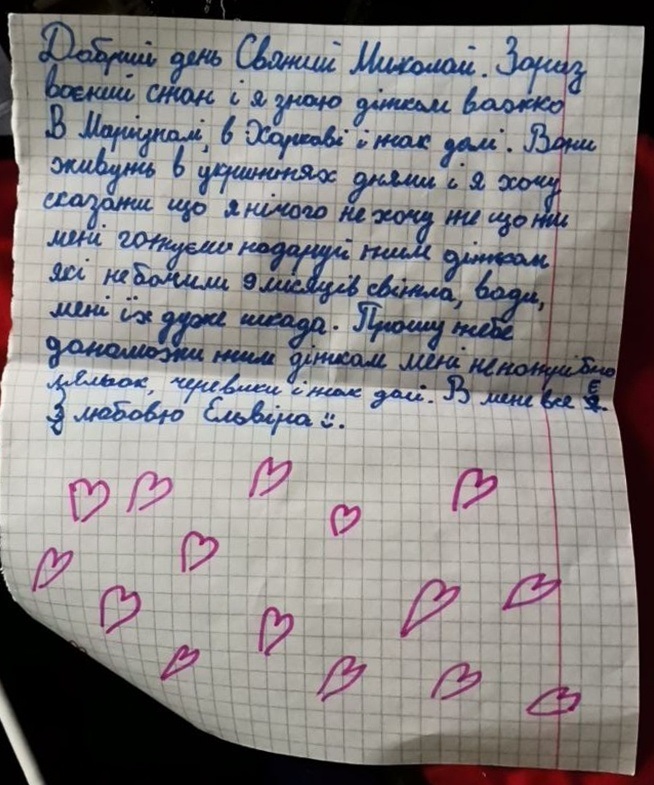 Добрий день Святий Миколай. Зараз
воєний стан і я знаю діткам важко
В Маріуполі, в Харкові і так далі. Вони
живуть в укриттях днями і я хочу
сказати що я нічого не хочу те що ти
мені готуєш подаруй тим діткам
які небачили 9 місяців світла, води,
мені їх дуже шкода. Прошу тебе
допоможи тим діткам мені непотрібно
ляльок, черевики і так далі. В мене все є.
З любовю Ельвіра